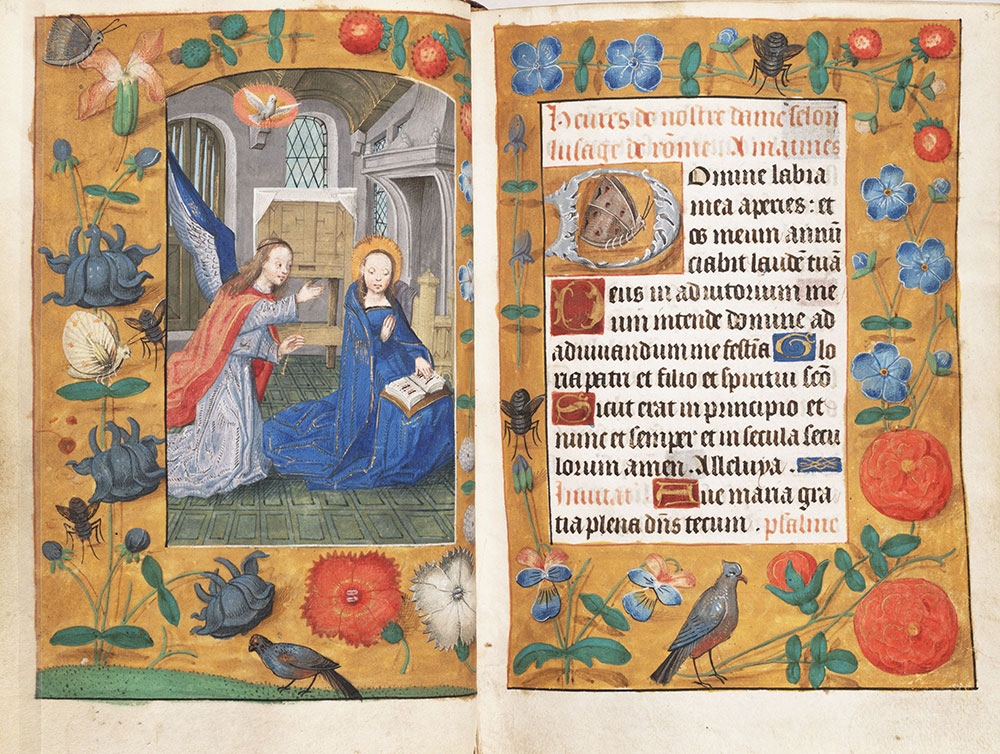 Heures de nostre dame selon
lusage de rōme. A matines
Domine labia
mea aperies: et
os meum annū
ciabit laudē tuā
Deus in adiutorium me
um intende domine ad
adiuuandum me festīa Glo
ria patri et filio et spiritui scō
Sicut erat in principio et
nunc et semper et in secula secu
lorum amen. Alleluya.
Inuitat Aue maria gra
tia plena dn̄s tecum. psalme